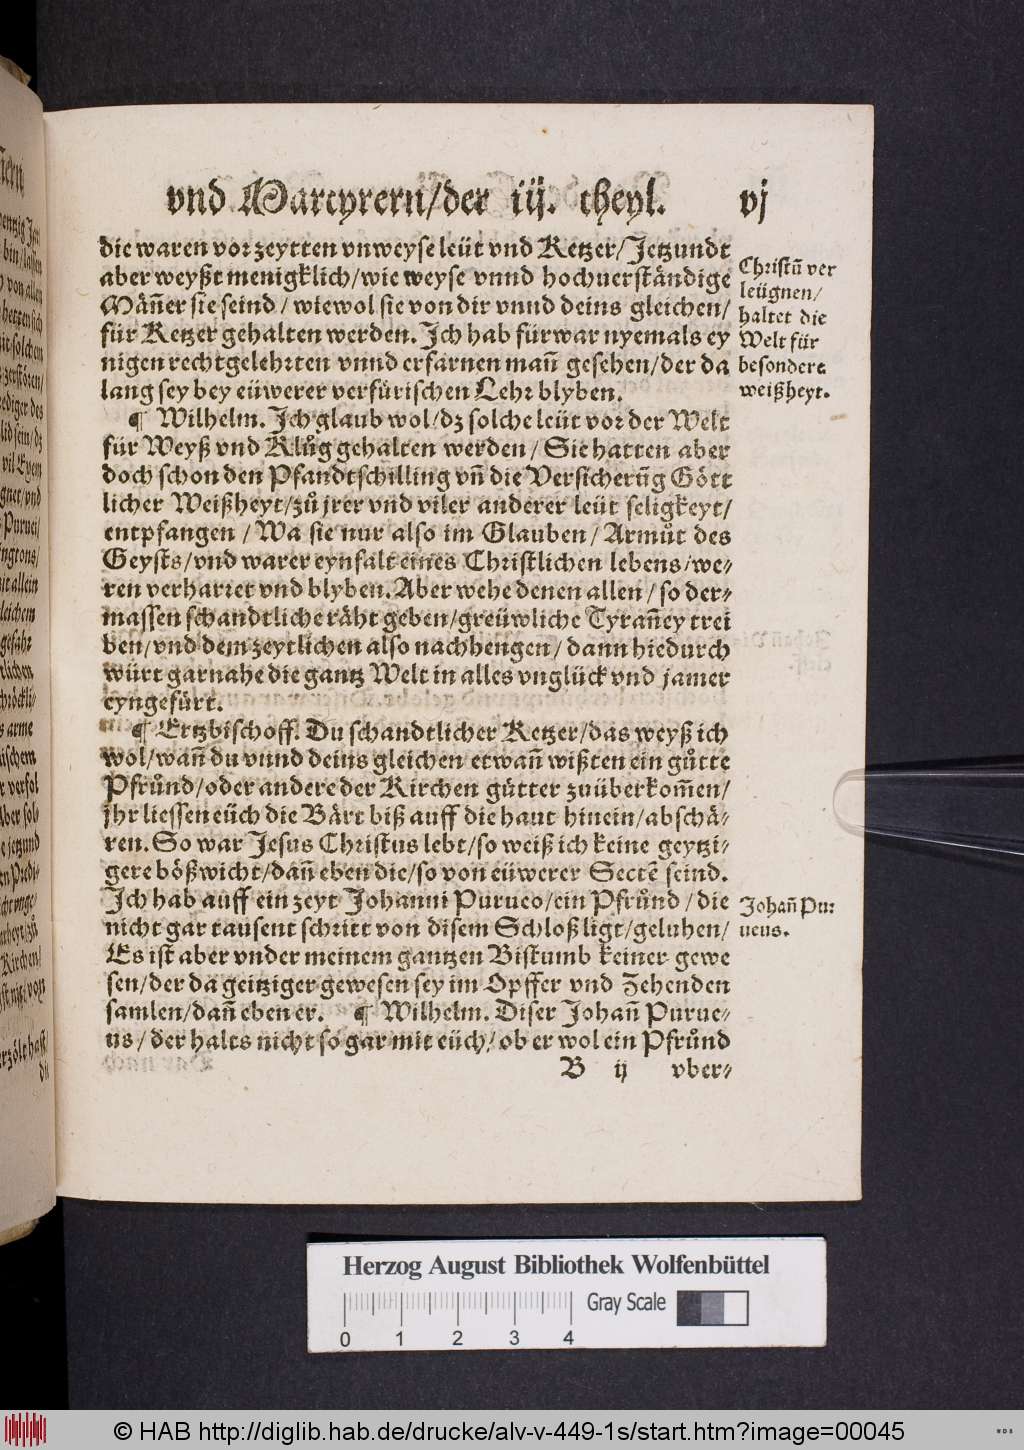 vnd Martyrern/der iij. theyl. vj
die waren vor zeytten vnweyse leüt vnd Ketzer/Jetzundt
aber weyßt menigklich/wie weyse vnnd hochuerständige
Mäñer sie seind/ wiewol sie von dir vnnd deins gleichen/
für Ketzer gehalten werden. Jch hab fürwar nyemals ey
nigen rechtgelehrten vnnd erfarnen mañ gesehen/der da
lang sey bey eüwerer verfürischen Lehr blyben.
Christũ ver
leügnen/
haltet die
Welt für
besondere
weißheyt.
¶ Wilhelm. Jch glaub wol/dz solche leüt vor der Welt
für Weyß vnd Klůg gehalten werden/ Sie hatten aber
doch schon den Pfandtschilling vñ die Versicherũg Gött
licher Weißheyt/zů jrer vnd viler anderer leüt seligkeyt/
entpfangen / Wa sie nur also im Glauben/ Armůt des
Geysts/vnd warer eynfalt eines Christlichen lebens/we⸗
ren verharret vnd blyben. Aber wehe denen allen/ so der⸗
massen schandtliche räht geben/greüwliche Tyrañey trei
ben/vnd dem zeytlichen also nachhengen/ dann hiedurch
würt garnahe die gantz Welt in alles vnglück vnd jamer
eyngefürt.
¶ Ertzbischoff. Du schandtlicher Ketzer/das weyß ich
wol/wañ du vnnd deins gleichen etwañ wißten ein gůtte
Pfrůnd/oder andere der Kirchen gütter zuüberkom̃en/
jhr liessen eüch die Bärt biß auff die haut hinein/abschä⸗
ren. So war Jesus Christus lebt/so weiß ich keine geytzi⸗
gere bößwicht/dañ eben die/so von eüwerer Sectẽ seind.
Jch hab auff ein zeyt Johanni Purueo/ein Pfrůnd/die
nicht gar tausent schritt von disem Schloß ligt/geluhen/
Es ist aber vnder meinem gantzen Bistumb keiner gewe
sen/der da geitziger gewesen sey im Opffer vnd Zehenden
samlen/dañ eben er. ¶ Wilhelm. Diser Johañ Purue⸗
us/ der halts nicht so gar mit eüch/ ob er wol ein Pfrůnd
Johañ Pur
ueus.
B ij vber⸗
Herzog August Bibliothek Wolfenbüttel
Gray Scale
0 1 2 3 4
© HAB http://diglib.hab.de/drucke/alv-v-449-1s/start.htm?image=00045